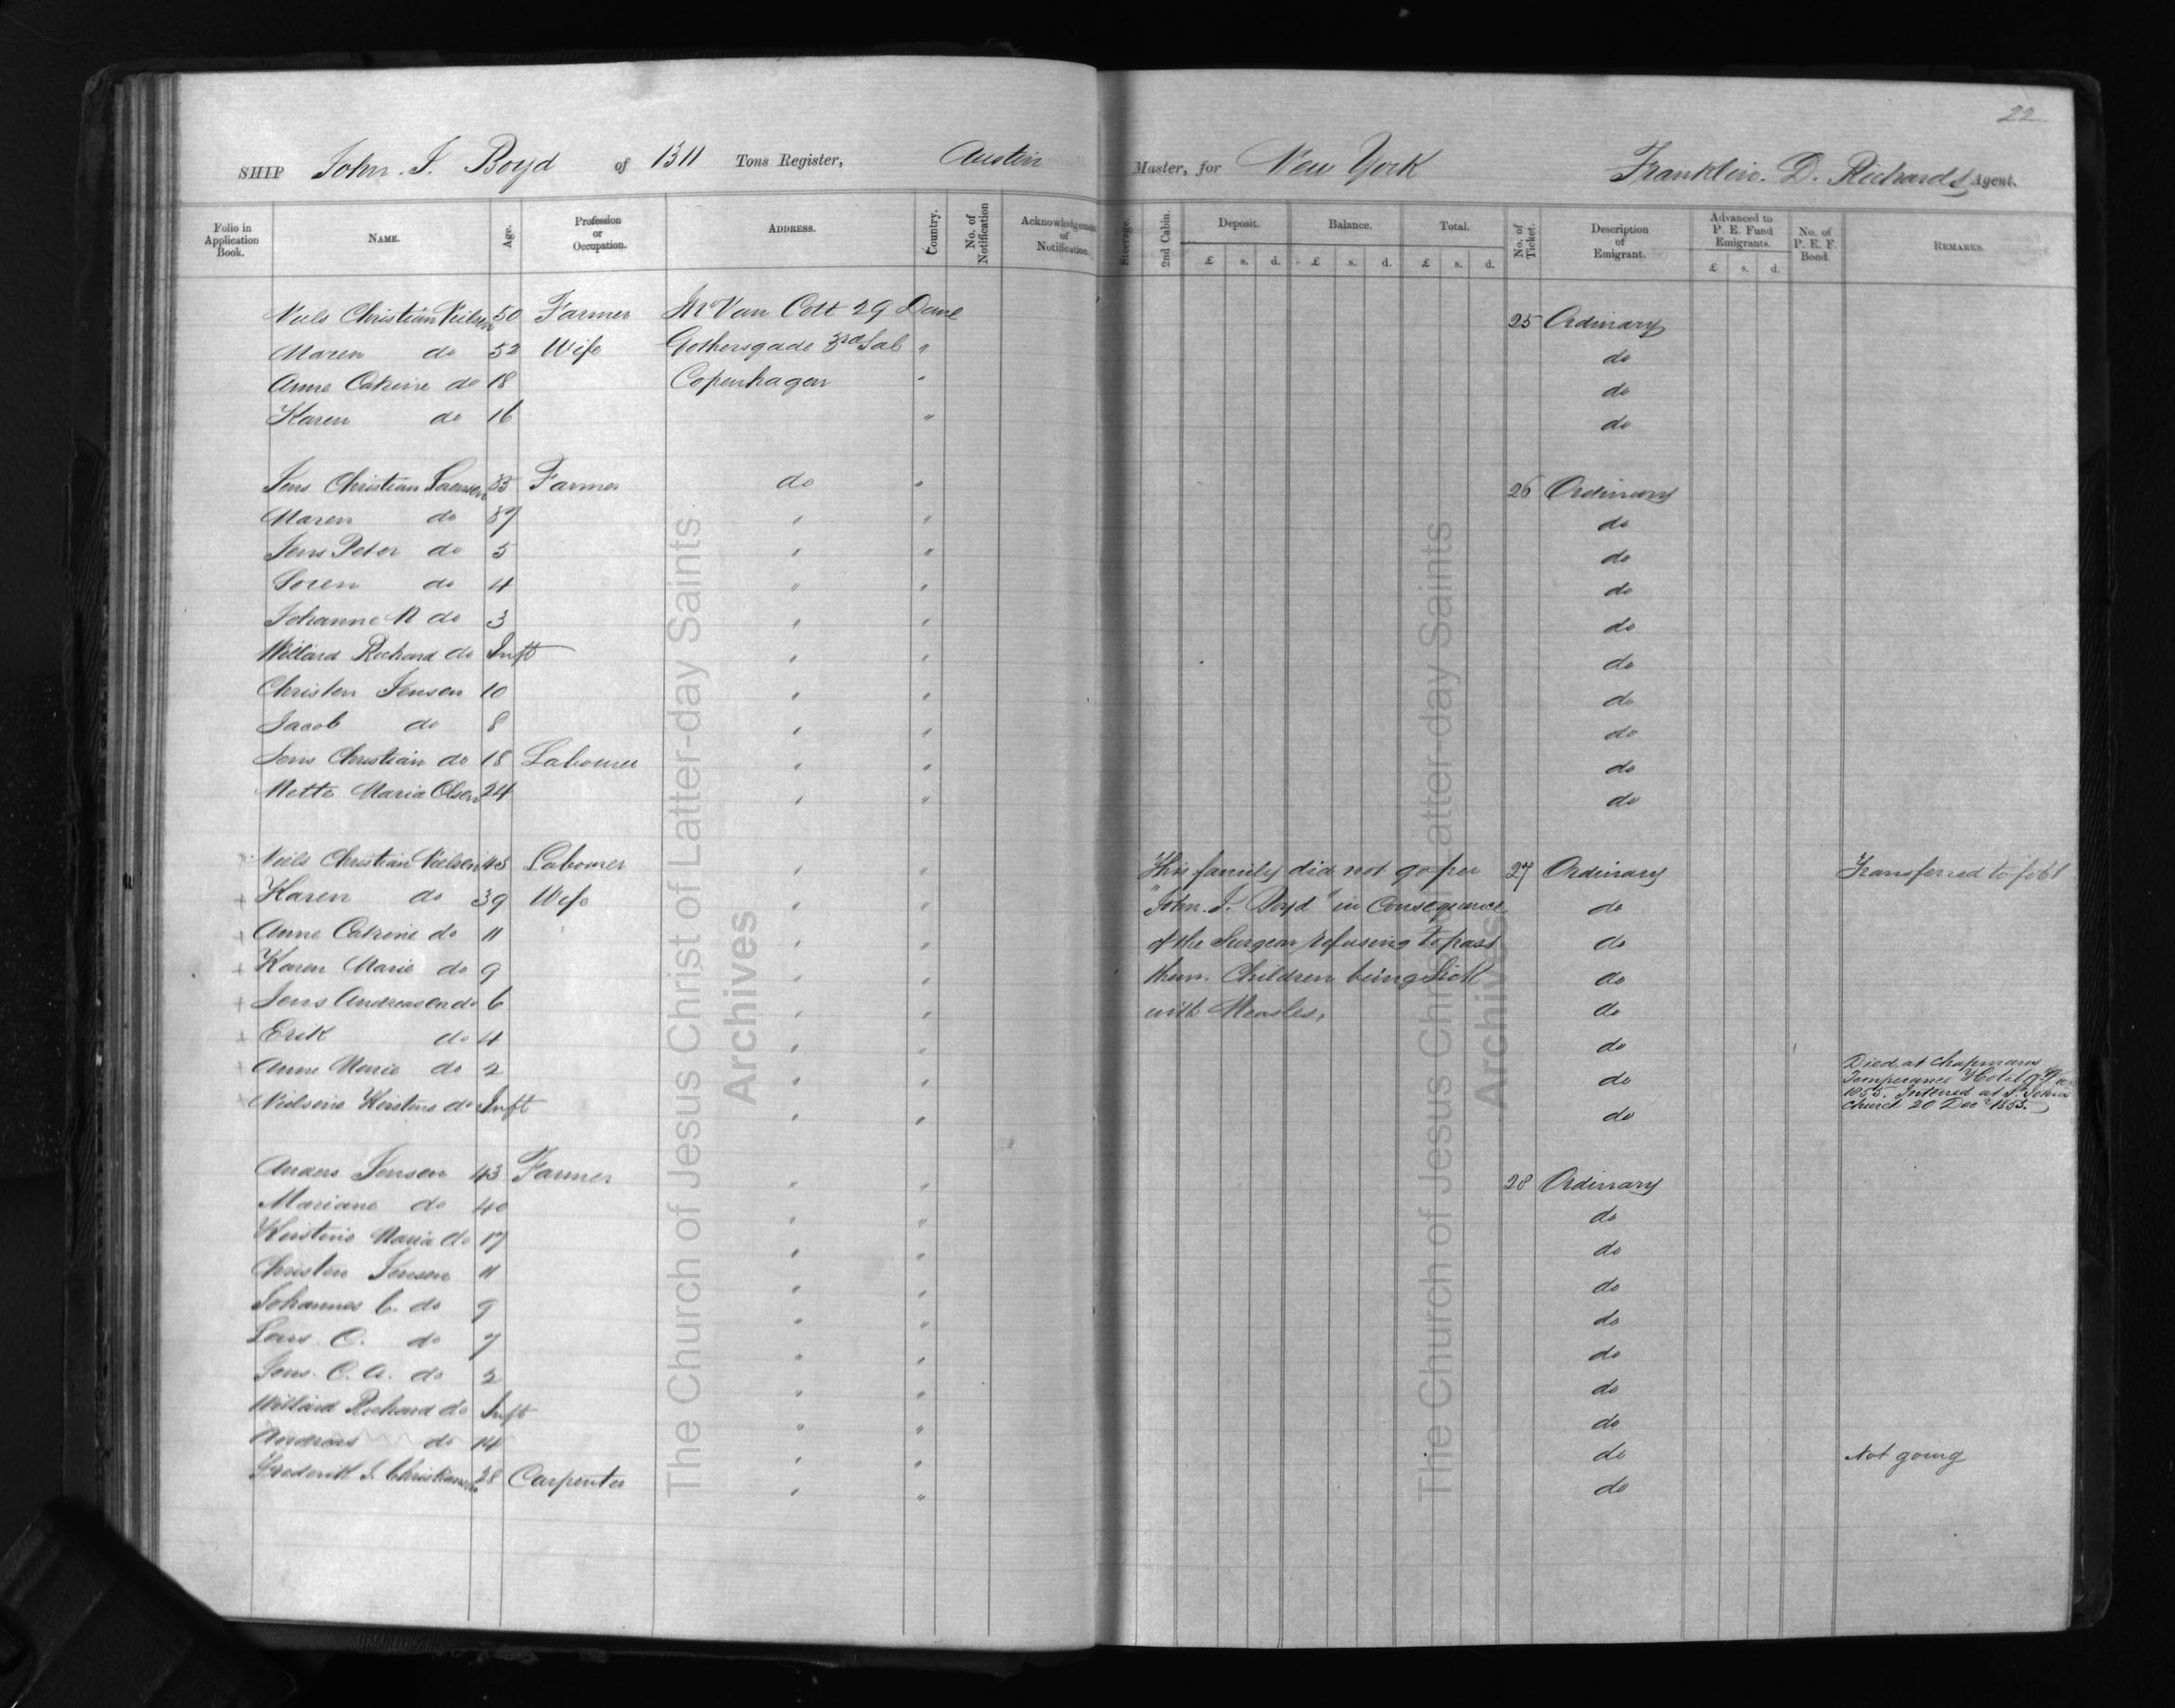 22
SHIP John. J. Boyd of 1311 Tons Register, Austin Master, for New York Franklin. D. Richards Agent.
Folio in Application Book. NAME. Age. Profession or Occupation. ADDRESS. Country. No. of Notification Acknowledgement of Notification. Steerage. 2nd Cabin. Deposit. £ s. d. Balance. £ s. d. Total. £ s. d. No. of Ticket. Description of Emigrant. Advanced to P. E. Fund Emigrants. £ s. d. No. of P. E. F. Bond. REMARKS.
Niels Christian Nielsen 50 Farmer Mr Van Cott 29 Dane 25 Ordinary
Maren do 52 Wife Gothersgade 3rd Sal " do
Anne Catrine do 18 Copenhagen " do
Karen do 16 " do
Jens Christian Sorensen 35 Farmer do " 26 Ordinary
Maren do 37 " " do
Jens Peter do 5 " " do
Soren do 4 " " do
Johanne M do 3 " " do
Willard Richard do Inft " " do
Christen Jensen 10 " " do
Jacob do 8 " " do
Jens Christian do 18 Labourer " " do
Mette Maria Olsen 24 " " do
Niels Christian Nielsen 45 Labourer " " This family did not go per 27 Ordinary Transferred to fo 68
+ Karen do 39 Wife " " "John. J. Boyd" in Consequence do
+ Anne Catrine do 11 " " of the Surgeon refusing to pass do
+ Karen Marie do 9 " " them. Children being Sick do
+ Jens Andreasen do 6 " " with Measles, do
+ Erik do 4 " " do
+ Anne Marie do 2 " " do Died at Chapmans Temperance Hotel
+ Nielsine Kirstine do Inft " " do 1855. Interred at St. Johns Church 20 Dec 1855.
Anders Jensen 43 Farmer " " 28 Ordinary
Mariane do 40 " " do
Kirstine Maria do 17 " " do
Christen Jensen 11 " " do
Johannes C. do 9 " " do
Lars. C. do 7 " " do
Jens. C. A. do 2 " " do
Willard Richard do Inft " " do
Andreas do 14 " " do Not going
Frederik J. Christiansen 28 Carpenter " " do
The Church of Jesus Christ of Latter-day Saints
Archives
The Church of Jesus Christ of Latter-day Saints
Archives